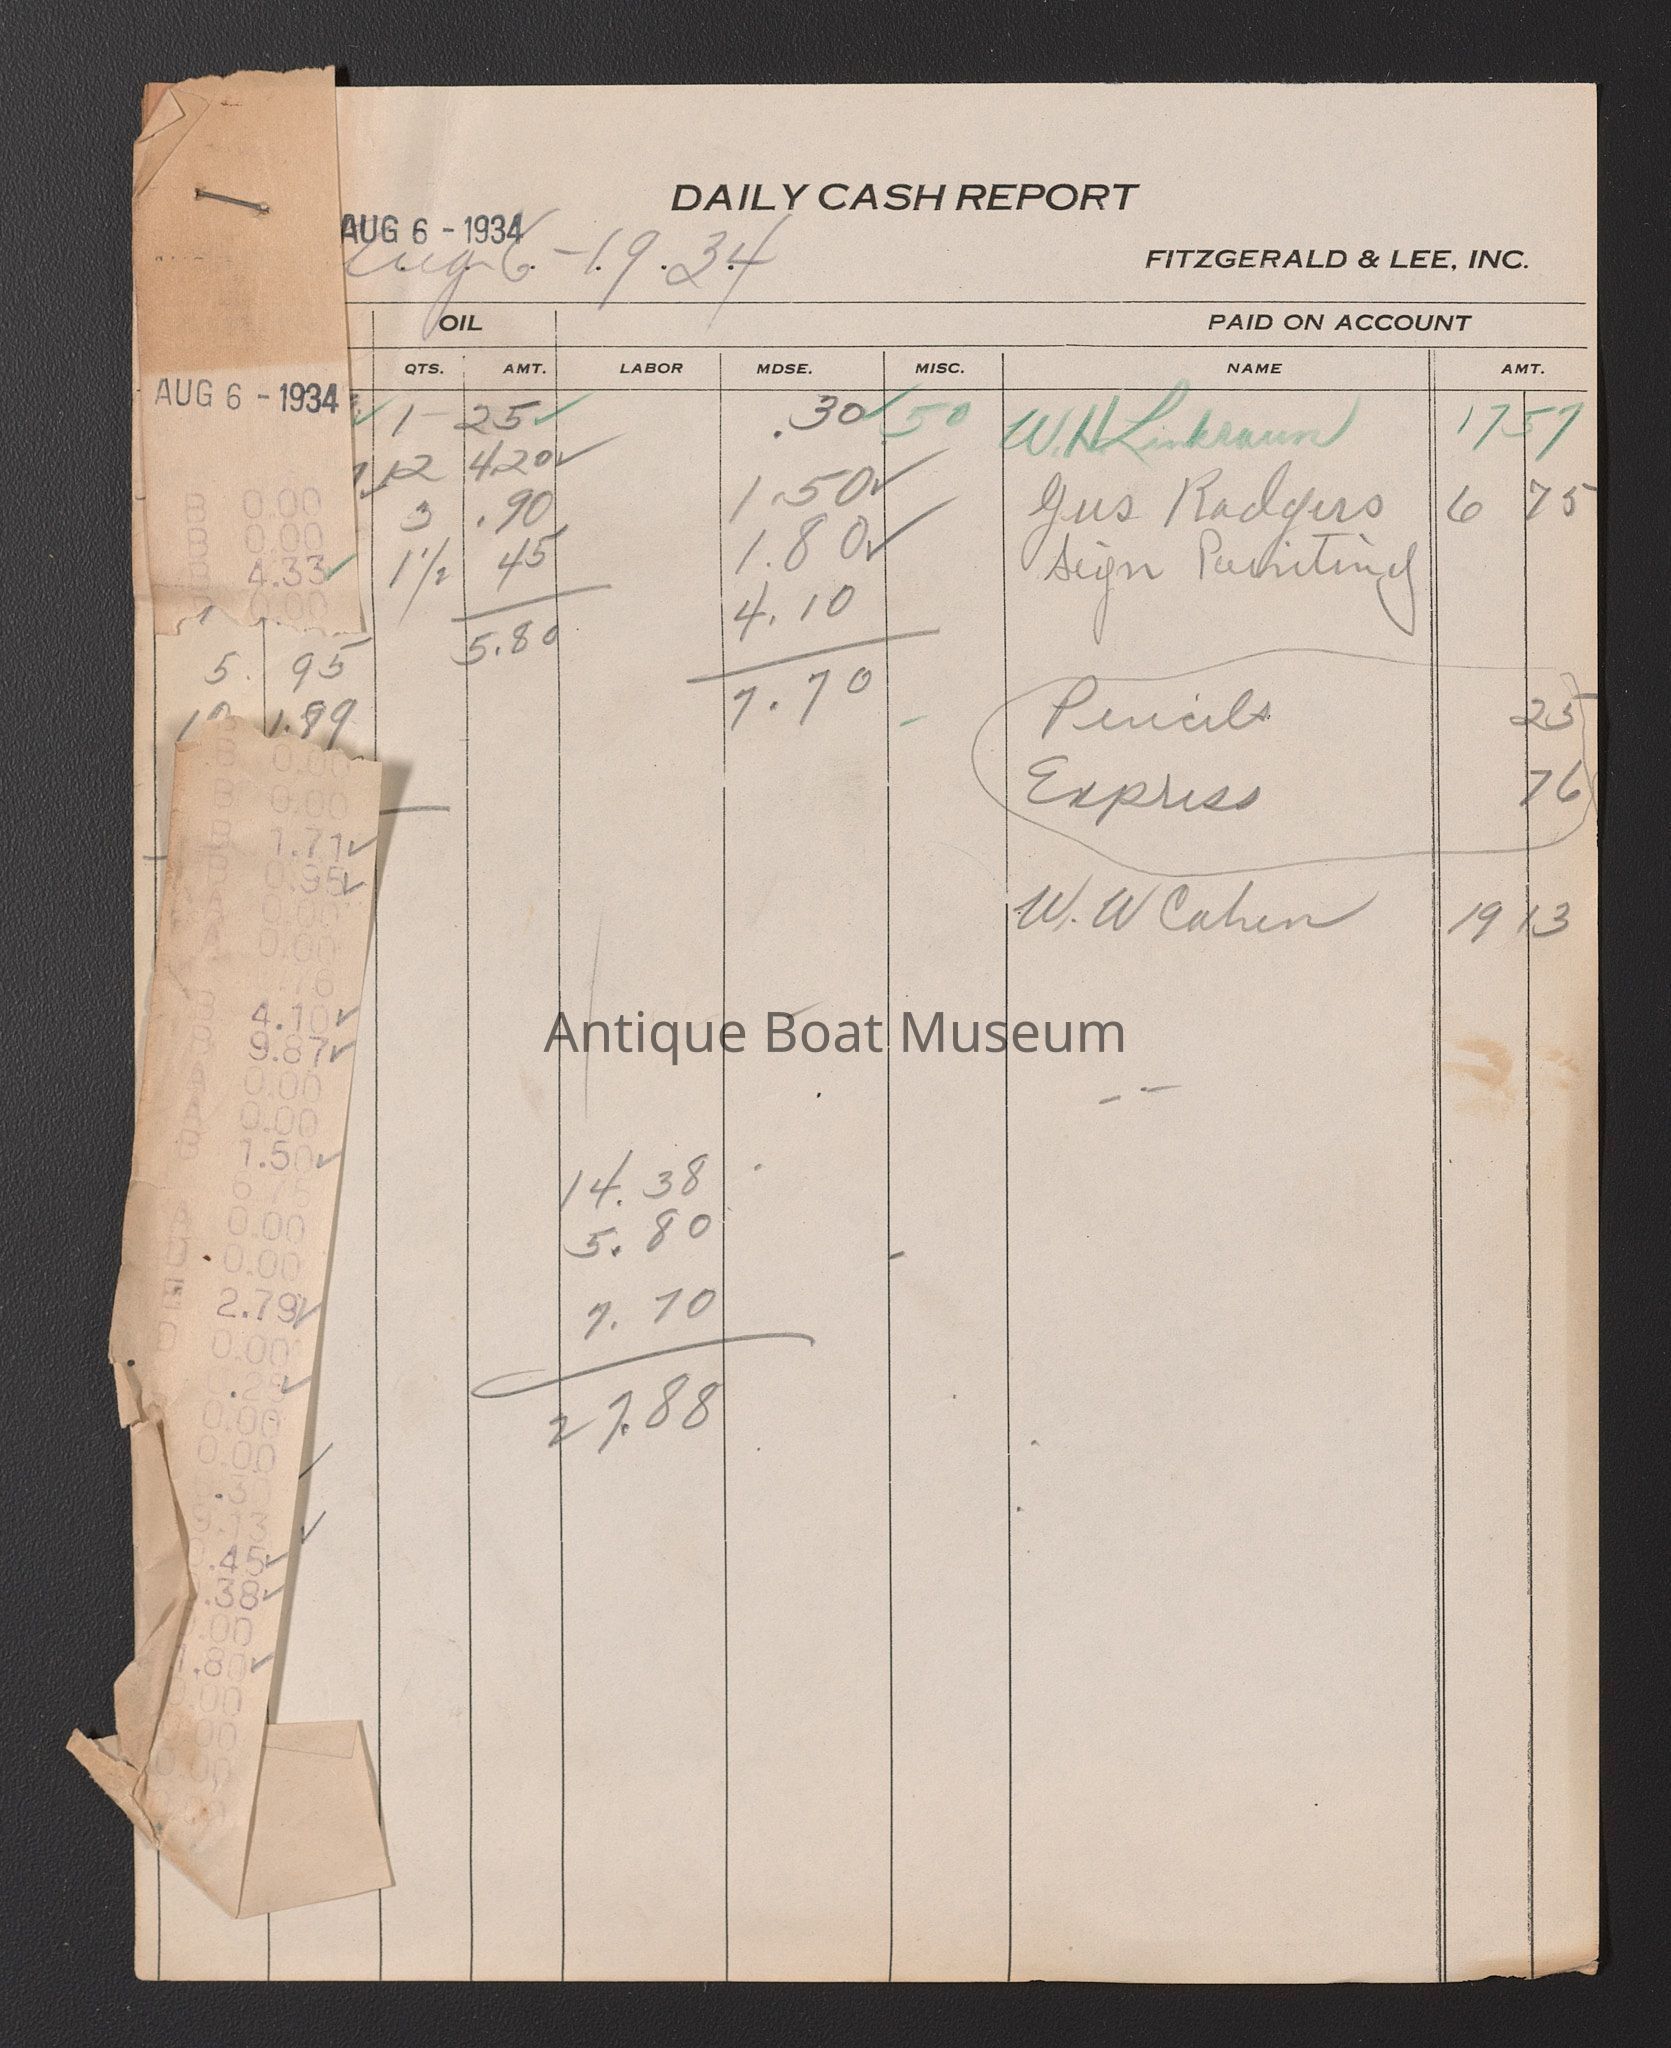 DAILY CASH REPORT
AUG 6 - 1934
Aug 6 - 1934
FITZGERALD & LEE, INC.
OIL PAID ON ACCOUNT
QTS. AMT. LABOR MDSE. MISC. NAME AMT.
AUG 6 - 1934
1 25 .30 50 W.H. 17 57
12 4.20 1.50 Gus Rodgers 6 75
3 .90 1.80 Sign Painting
1 1/2 45 4.10
5.80 7.70
0.00
0.00
4.33
0.00
5. 95
1.89
Pencils 25
Express 76
W. W Cohen 19 13
0.00
0.00
1.71
0.95
0.00
0.00
.76
4.10
9.87
0.00
0.00
1.50
6.75
0.00
0.00
2.79
0.00
.25
0.00
0.00
.30
.45
.38
.00
1.80
0.00
0.00
0.00
Antique Boat Museum
14.38
5.80
7.70
27.88